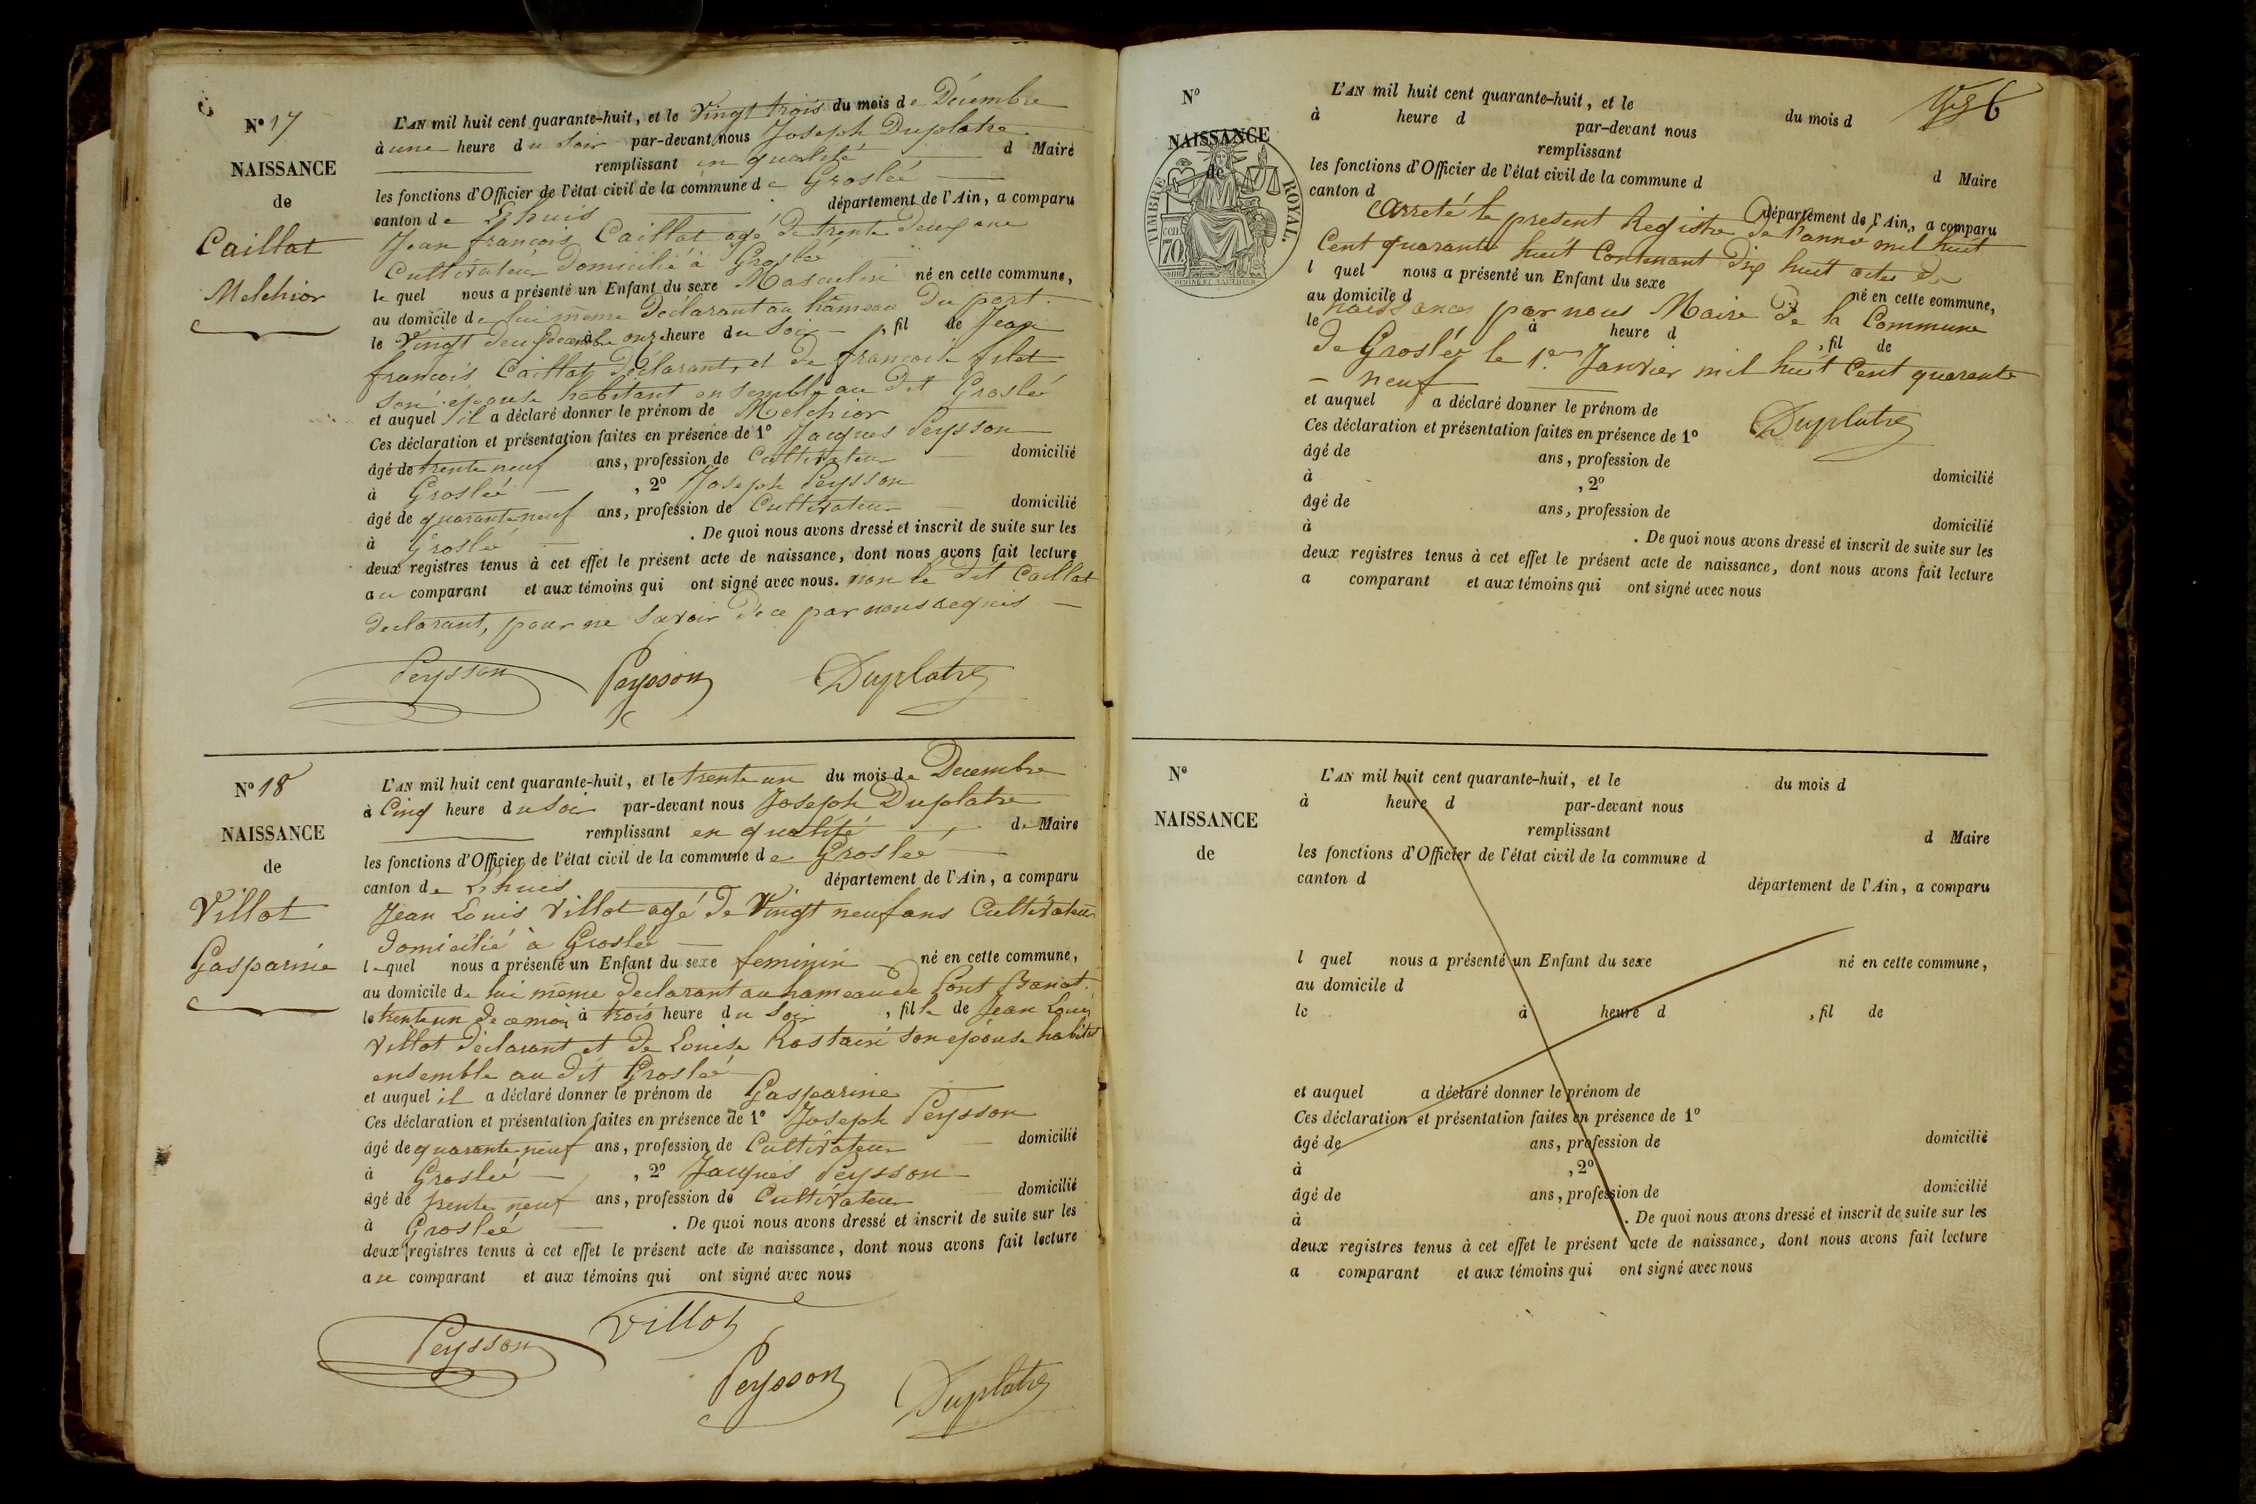 N° 17
NAISSANCE
de
Caillat
Melchior
L'AN mil huit cent quarante-huit, et le Vingt trois du mois de Décembre
à une heure du soir par-devant nous Joseph Duplatre
remplissant en qualité d Maire
les fonctions d'Officier de l'état civil de la commune de Groslée
canton de Lhuis département de l'Ain, a comparu
Jean francois Caillat agé de trente deux ans
Cultivateur domicilié à Groslée
le quel nous a présenté un Enfant du sexe Masculin né en cette commune,
au domicile de lui même déclarant au hameau du port
le Vingt deux décembre à onze heure du Soir, fil de Jean
francois Caillat déclarant, et de francoise filet
son épouse habitant ensemble au dit Groslée
et auquel il a déclaré donner le prénom de Melchior
Ces déclaration et présentation faites en présence de 1° Jacques Peysson
âgé de trente neuf ans, profession de Cultivateur domicilié
à Groslée, 2° Joseph Peysson
âgé de quarante neuf ans, profession de Cultivateur domicilié
à Groslée. De quoi nous avons dressé et inscrit de suite sur les
deux registres tenus à cet effet le présent acte de naissance, dont nous avons fait lecture
au comparant et aux témoins qui ont signé avec nous. non le dit Caillat
déclarant, pour ne savoir de ce par nous requis
Peysson Peysson Duplatre
N° 18
NAISSANCE
de
Villot
Gasparine
L'AN mil huit cent quarante-huit, et le trente un du mois de Decembre
à Cinq heure du Soir par-devant nous Joseph Duplatre
remplissant en qualité de Maire
les fonctions d'Officier de l'état civil de la commune de Groslée
canton de Lhuis département de l'Ain, a comparu
Jean Louis Villot agé de Vingt neuf ans Cultivateur
domicilié à Groslée
lequel nous a présenté un Enfant du sexe feminin né en cette commune,
au domicile de lui même declarant au hameau de Pont Bancet
le trente un de ce mois à trois heure du Soir, fille de Jean Louis
Villot déclarant et de Louise Rostain son épouse habitant
ensemble au dit Groslée
et auquel il a déclaré donner le prénom de Gasparine
Ces déclaration et présentation faites en présence de 1° Joseph Peysson
âgé de quarante neuf ans, profession de Cultivateur domicilié
à Groslée, 2° Jacques Peysson
âgé de trente neuf ans, profession de Cultivateur domicilié
à Groslée. De quoi nous avons dressé et inscrit de suite sur les
deux registres tenus à cet effet le présent acte de naissance, dont nous avons fait lecture
au comparant et aux témoins qui ont signé avec nous
Villot
Peysson
Peysson Duplatre
6
N°
NAISSANCE
de
TIMBRE ROYAL.
70
L'AN mil huit cent quarante-huit, et le du mois d
à heure d par-devant nous
remplissant d Maire
les fonctions d'Officier de l'état civil de la commune d
canton d département de l'Ain, a comparu
Arreté le present Registre de l'année mil huit
Cent quarante huit Contenant dix huit actes de
l quel nous a présenté un Enfant du sexe né en cette commune,
au domicile d
naissances par nous Maire de la Commune
le à heure d, fil de
de Groslée le 1er Janvier mil huit Cent quarante
neuf
et auquel a déclaré donner le prénom de
Duplatre
Ces déclaration et présentation faites en présence de 1°
âgé de ans, profession de domicilié
à, 2°
âgé de ans, profession de domicilié
à. De quoi nous avons dressé et inscrit de suite sur les
deux registres tenus à cet effet le présent acte de naissance, dont nous avons fait lecture
a comparant et aux témoins qui ont signé avec nous
N°
NAISSANCE
de
L'AN mil huit cent quarante-huit, et le du mois d
à heure d par-devant nous
remplissant d Maire
les fonctions d'Officier de l'état civil de la commune d
canton d département de l'Ain, a comparu
l quel nous a présenté un Enfant du sexe né en cette commune,
au domicile d
le à heure d, fil de
et auquel a déclaré donner le prénom de
Ces déclaration et présentation faites en présence de 1°
âgé de ans, profession de domicilié
à, 2°
âgé de ans, profession de domicilié
à. De quoi nous avons dressé et inscrit de suite sur les
deux registres tenus à cet effet le présent acte de naissance, dont nous avons fait lecture
a comparant et aux témoins qui ont signé avec nous